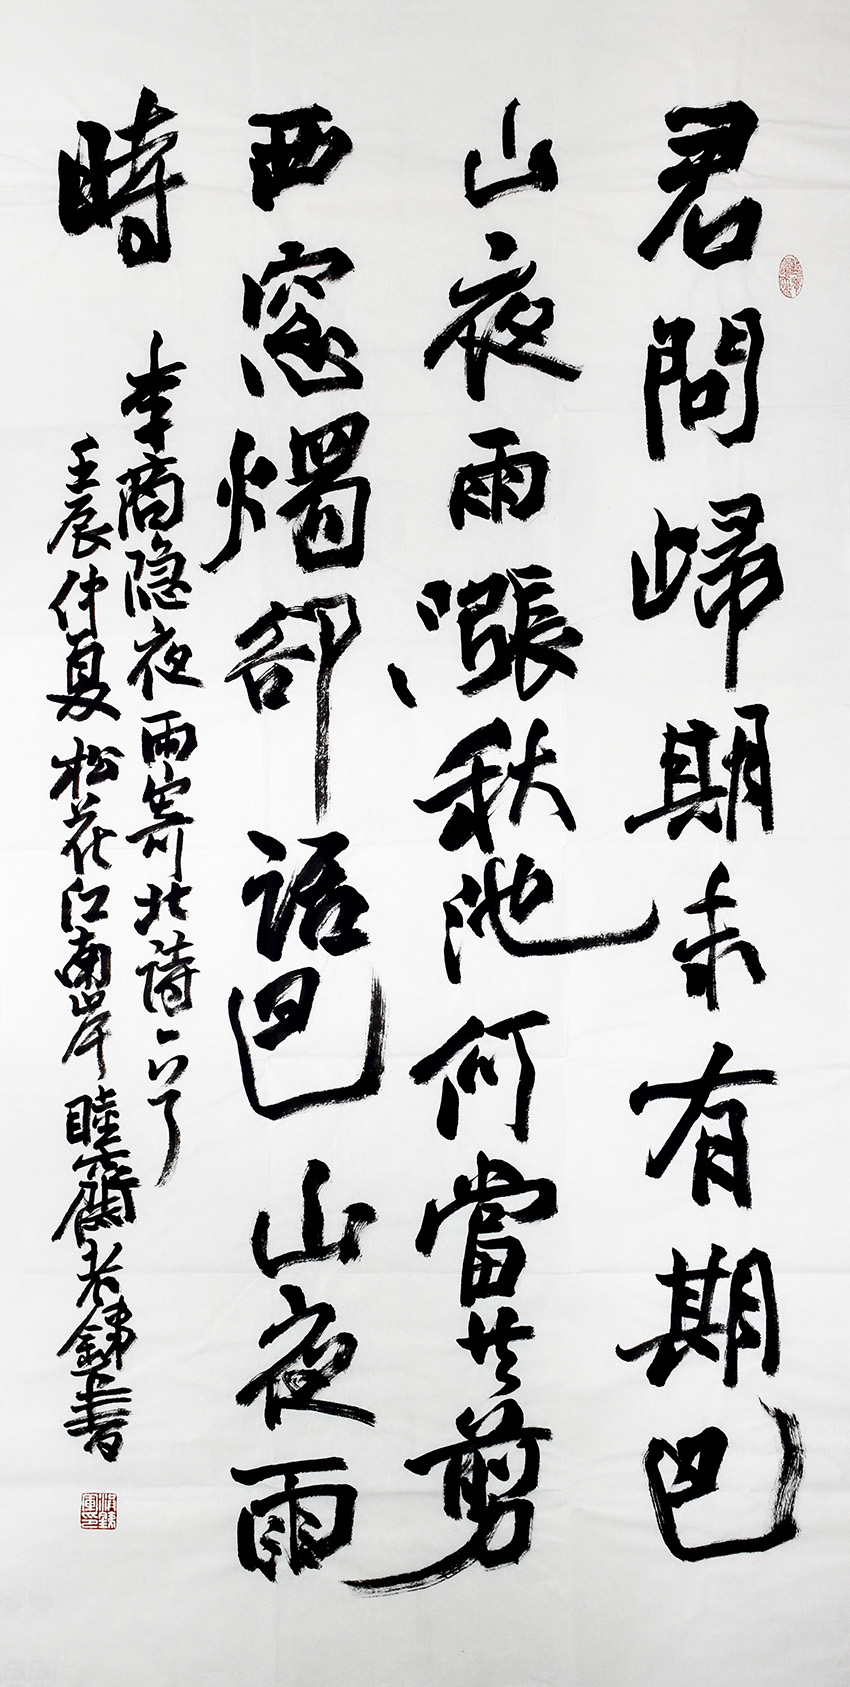 君問歸期未有期巴
山夜雨漲秋池何當共剪
西窓燭卻語巴山夜雨
時
李商隐夜雨寄北詩一首
壬辰仲夏松花江南岸睦齋老鐵書